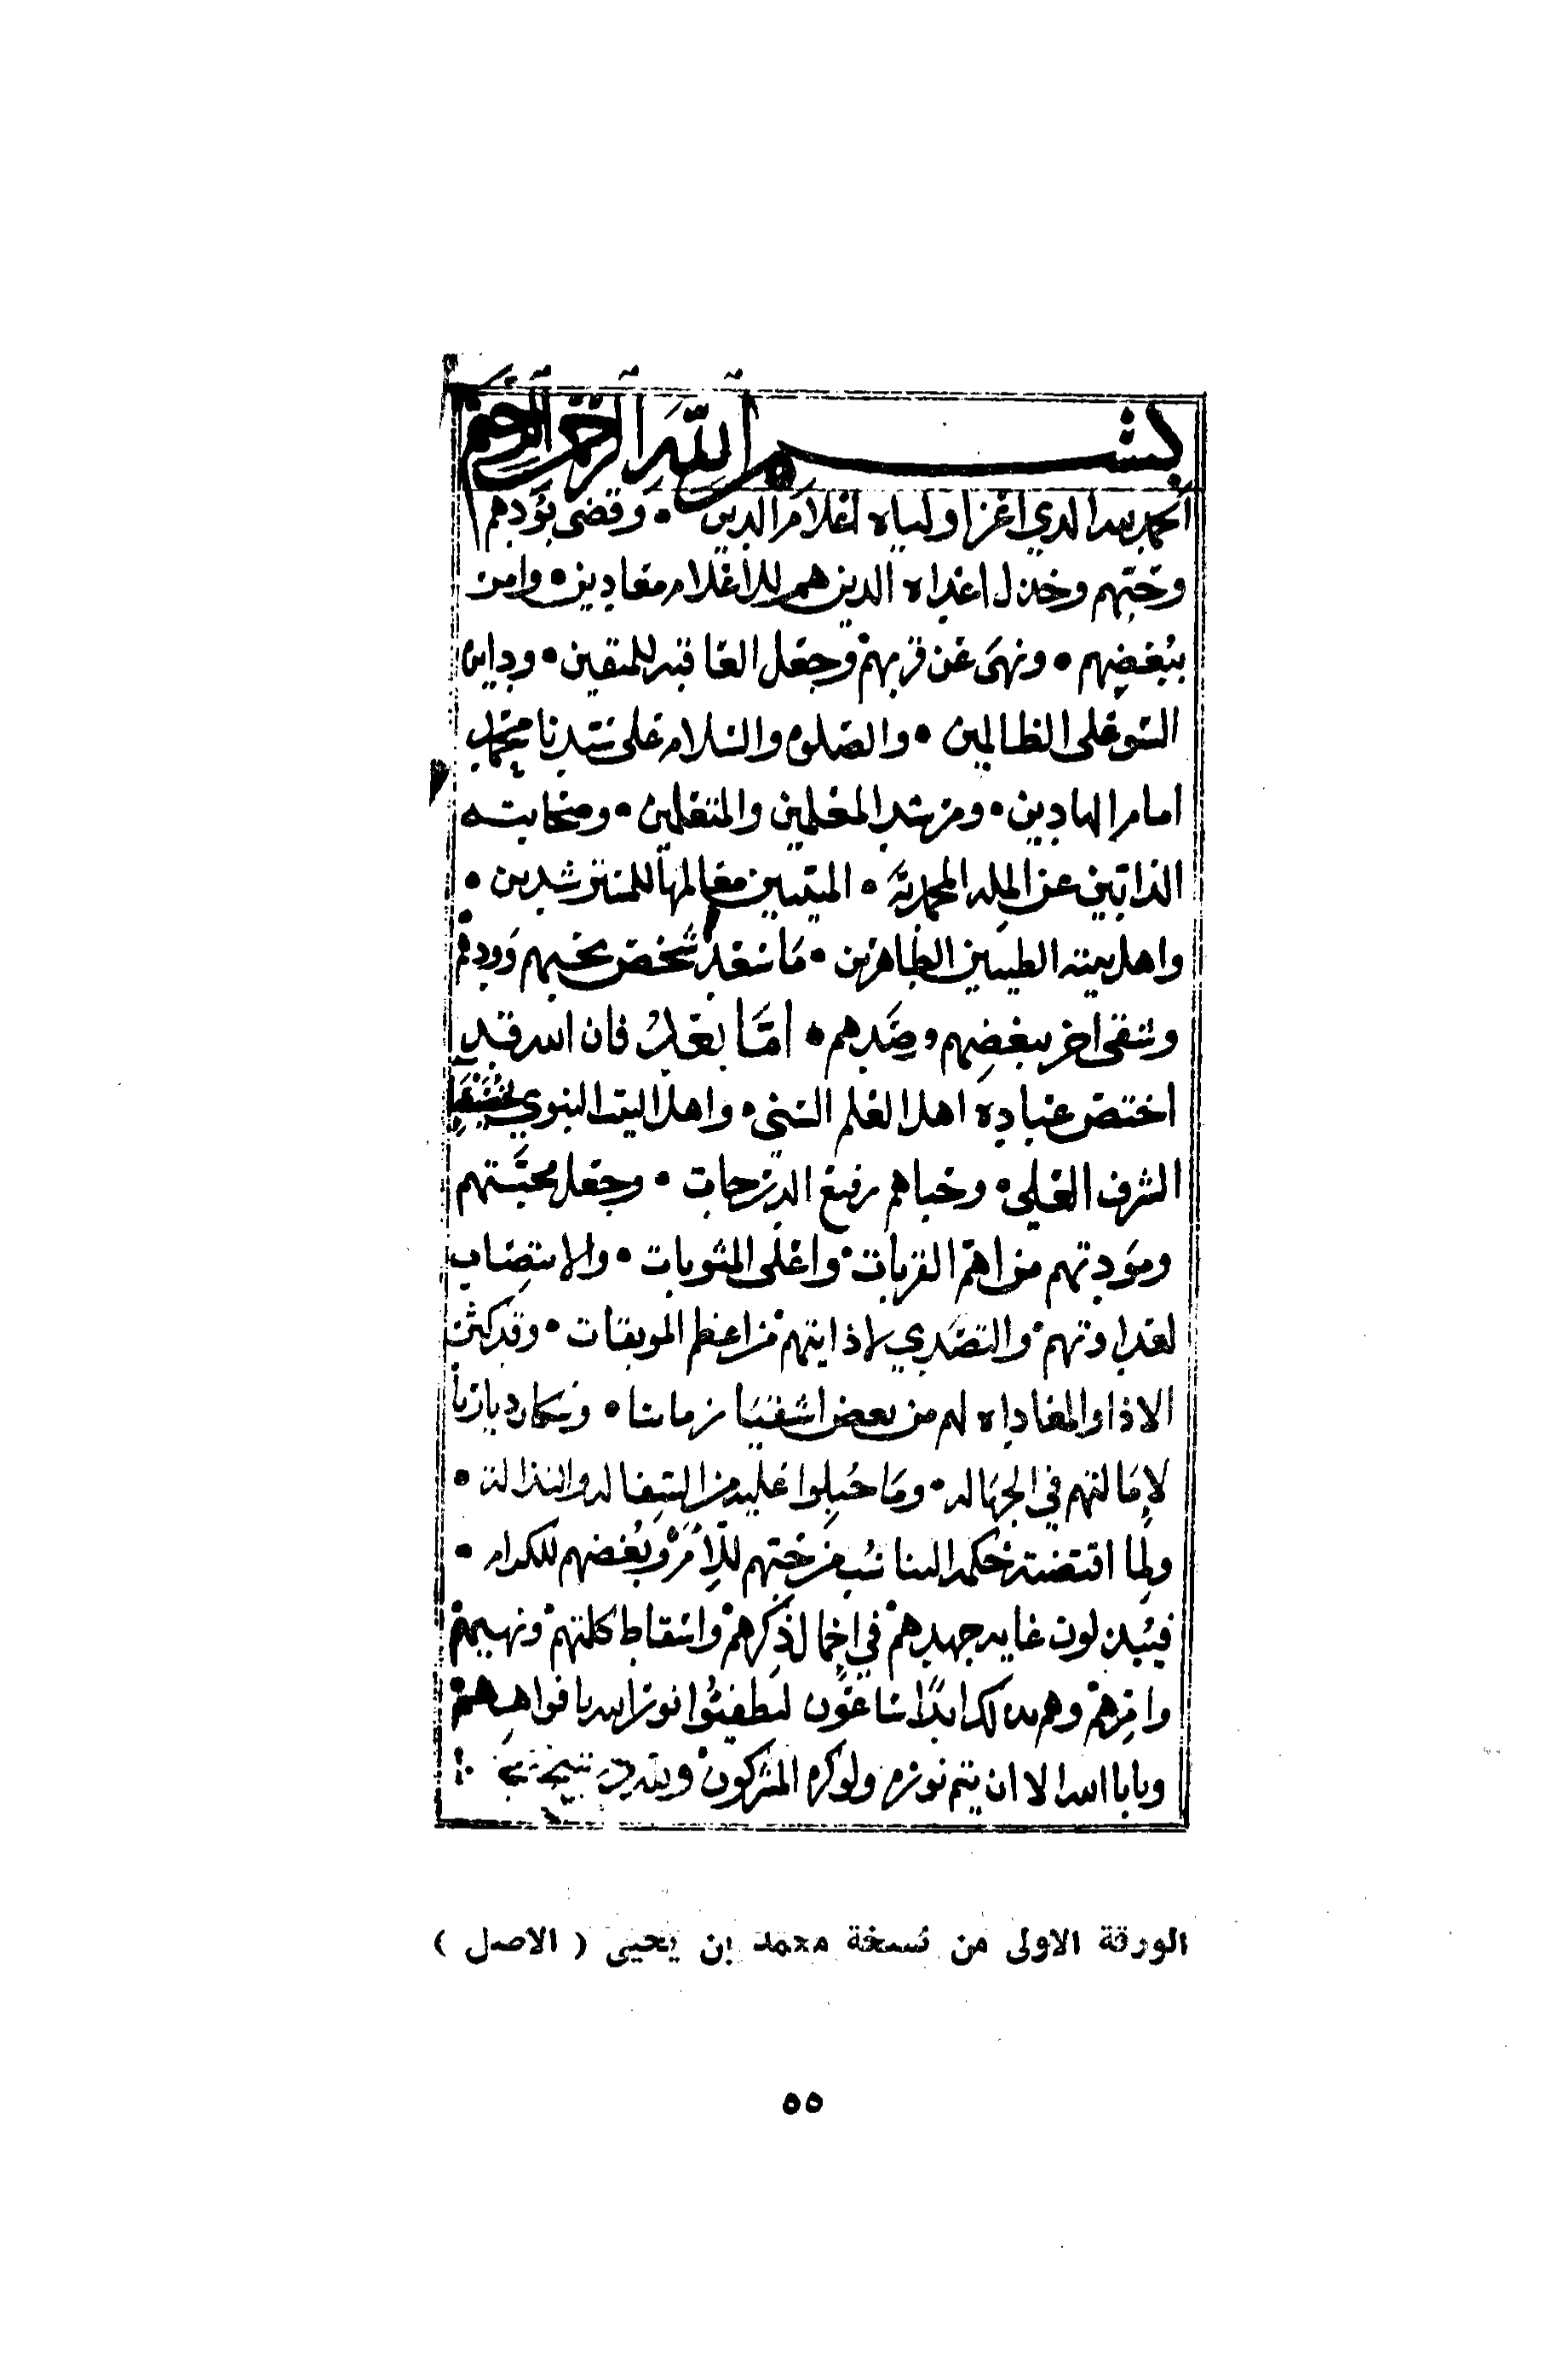 بسم الله الرحمن الرحيم
الحمد لله الذي اعز اولياه اعلام الدين • وقضى بودهم
وحبهم وخذل اعداه الذين هم للاعلام معادين • وامر
ببغضهم • ونهى عن قربهم وجعل العاقبه للمتقين • ودايره
السو على الظالمين • والصلوه والسلام على سيدنا محمد
امام الهادين • ومرشد المعلمين والمتعلمين • وصحابته
الذابين عن المله المحمديه • المبينين معالمها للمسترشدين •
واهل بيته الطيبين الطاهرين • ما سعد شخص بحبهم وودهم
وشقى اخر ببغضهم وضدهم • اما بعد فان الله قد
اختص عباده اهل العلم السني • واهل البيت النبوي
الشرف العلي • وحباهم رفيع الدرجات • وجعل محبتهم
ومودتهم من اهم القربات • واعلى المثوبات • والانتصاب
لعداوتهم والتصدي لاذايتهم من اعظم الموبقات • وقد كثرت
الاذا والمعاداه لهم من بعض اشقيا زماننا • وسكان ديارنا
لإمالتهم في الجهاله • وما جبلوا عليه من السفاله والنذاله •
ولما اقتضته حكمه من للكرام •
فيبذلون غايه جهدهم في إخمال ذكرهم واسقاط كلمتهم ونهيهم
وامرهم وهم بذلك ابدًا ساعون ليطفئوا نور الله بافواههم
ويابا الله الا ان يتم نوره ولو كره المشركون ولله در
الورقة الاولى من نسخة محمد بن يحيى ( الاصل )
٥٥